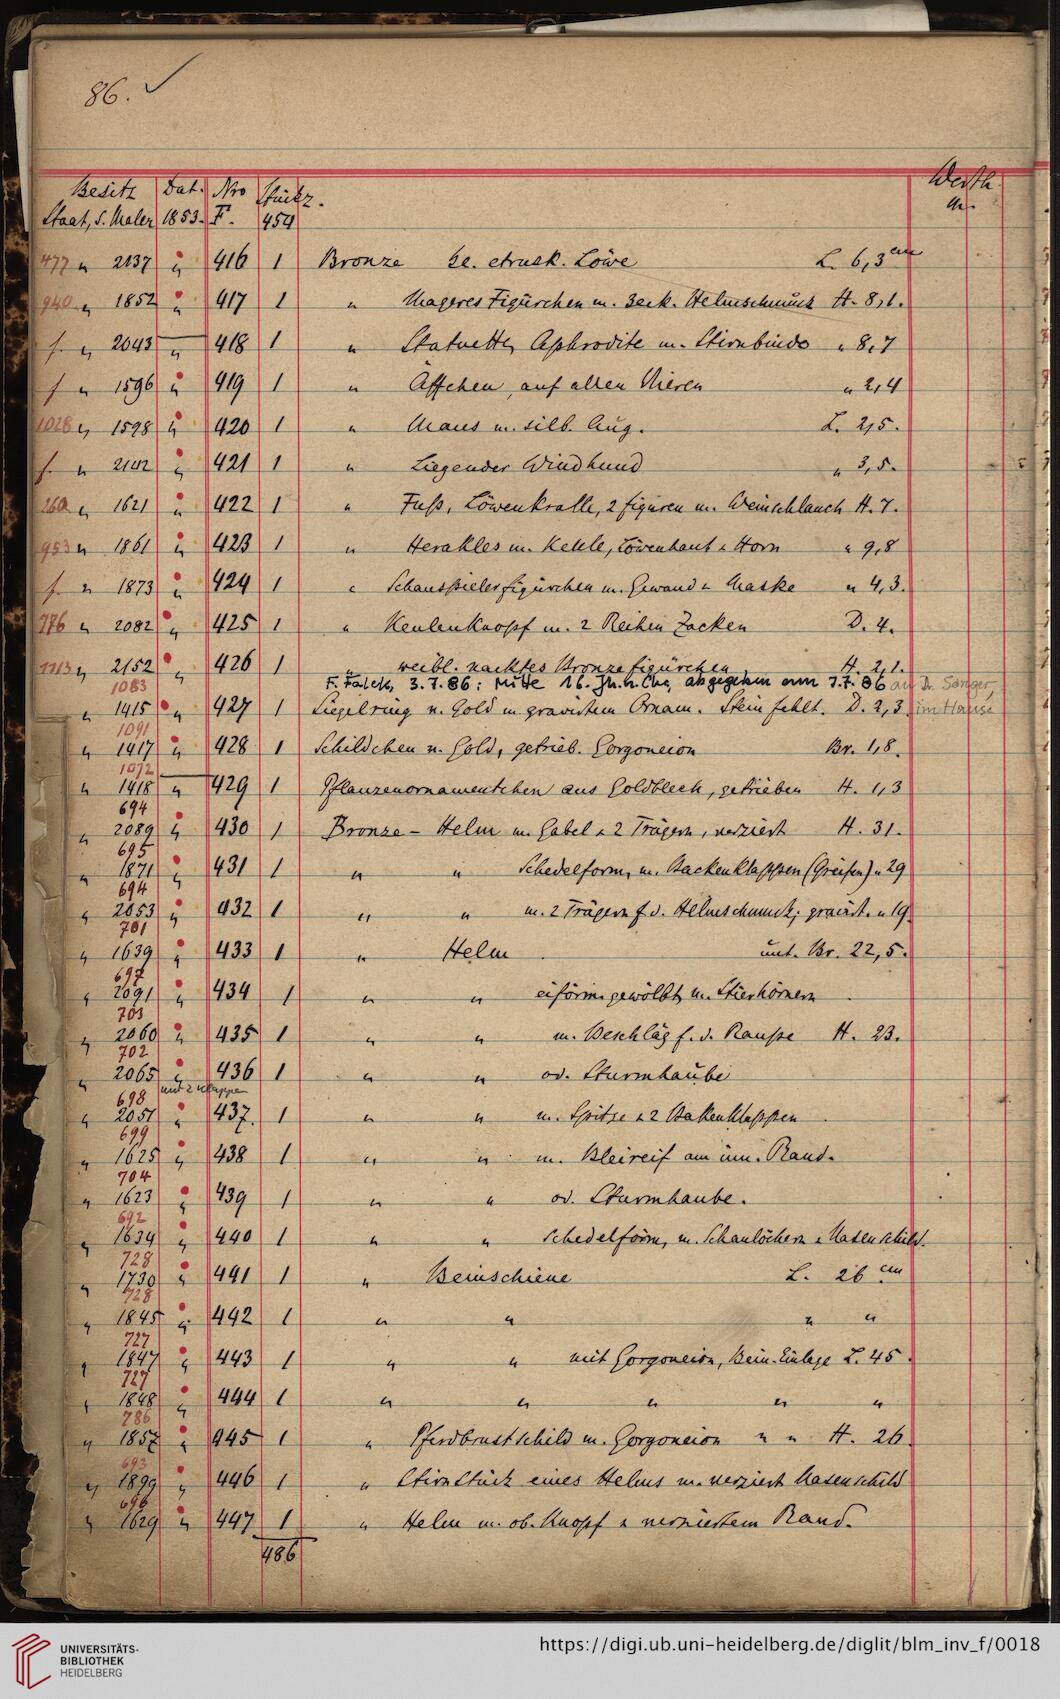 86.
Besitz Dat. Nro Stückz. Werth
Staat, S. Maler 1853. F. 454 M.
477 " 2137 " 416 1 Bronze Löwe L. 6,3 cm
940 " 1852 " 417 1 " Mageres Figürchen m. 3eck. Helmschmuck H. 8,1.
f. " 2043 " 418 1 " Statuette, Aphrodite m. Stirnbinde " 8,7
f " 1596 " 419 1 " Äffchen, auf allen Vieren " 2,4
1028 " 1598 " 420 1 " Maus m. silb. Aug. L. 2,5.
f. " 2142 " 421 1 " Liegender Windhund " 3,5.
260 " 1621 " 422 1 " Fuß, Löwenkralle, 2 figuren m. Weinschlauch H. 7.
953 " 1861 " 423 1 " Herakles m. Keule, Löwenhaut & Horn " 9,8
f. " 1873 " 424 1 " Schauspielerfigürchen m. Gewand & Maske " 4,3.
776 " 2082 " 425 1 " Keulenknopf m. 2 Reihen Zacken D. 4.
1113 " 2152 " 426 1 " weibl. nacktes Bronzefigürchen H. 2,1.
F. Falch, 3.7.86: Mitte 16. Jh. n. Chr, abgegeben am 7.7.86 an Dr. Sänger,
1083
" 1415 " 427 1 Siegelring v. Gold m. gravirtem Ornam. Stein fehlt. D. 2,3. im Hause
1091
" 1417 " 428 1 Schildchen v. Gold, getrieb. Gorgoneion Br. 1,8.
1072
" 1418 " 429 1 Pflanzenornamentchen aus Goldblech, getrieben H. 1,3
694
" 2089 " 430 1 Bronze - Helm m. Gabel & 2 Trägern, verziert H. 31.
695
" 1871 " 431 1 " " Schedelform, m. Backenklappen (Greifen) " 29
694
" 2053 " 432 1 " " m. 2 Trägern f. d. Helmschmuck; gravirt. " 19.
701
" 1639 " 433 1 " Helm unt. Br. 22,5.
697
" 2091 " 434 1 " " eiförm. gewölbt, m. Stierhörnern
703
" 2060 " 435 1 " " m. Beschläg f. d. Raupe H. 23.
702
" 2065 " 436 1 " " od. Sturmhaube
698 mit 2 Klappen
" 2051 " 437. 1 " " m. Spitze & 2 Bakenklappen
699
" 1625 " 438 1 " " m. Bleireif am inn. Rand.
704
" 1623 " 439 1 " " od. Sturmhaube.
692
" 1634 " 440 1 " " Schedelform, m. Schaulöchern & Nasenschild.
728
" 1730 " 441 1 " Beinschiene L. 26 cm
728
" 1845 " 442 1 " " " "
727
" 1847 " 443 1 " " mit Gorgoneion, Bein-Einlage L. 45.
727
" 1848 " 444 1 " " " " "
786
" 1857 " 445 1 " Pferdbrustschild m. Gorgoneion " " H. 26.
693
" 1899 " 446 1 " Stirnstück eines Helms m. verziert Nasenschild
696
" 1629 " 447 1 " Helm m. ob. Knopf & verziertem Rand.
486
UNIVERSITÄTS-
BIBLIOTHEK
HEIDELBERG
https://digi.ub.uni-heidelberg.de/diglit/blm_inv_f/0018